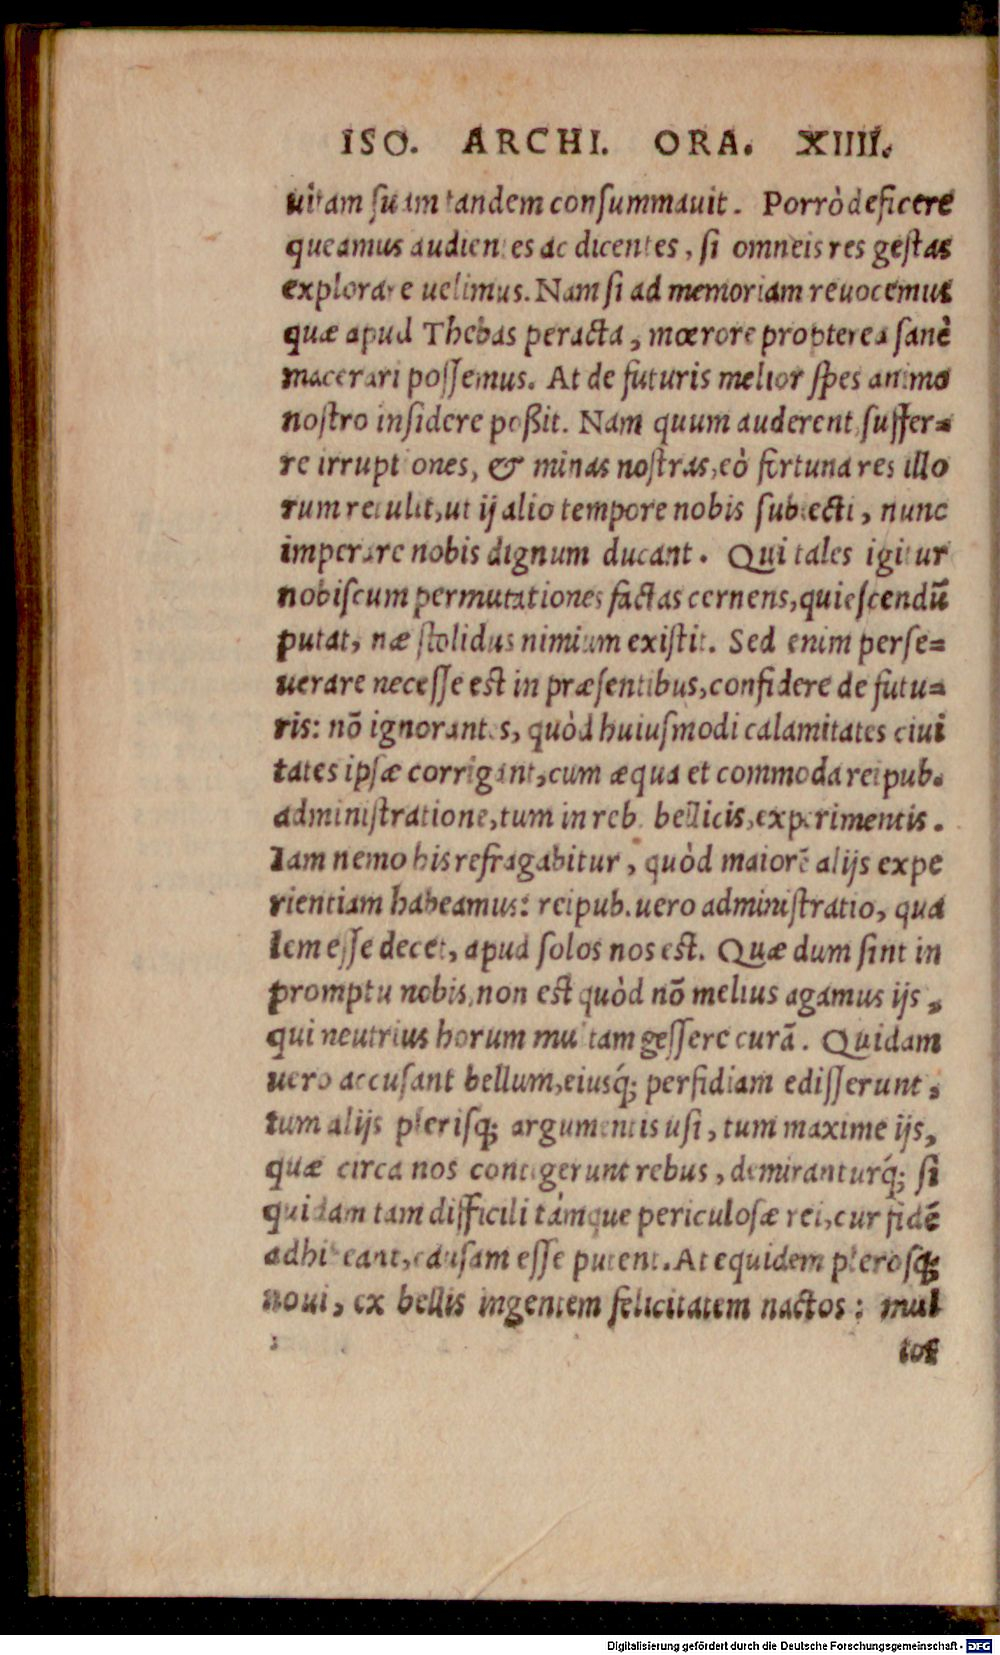 ISO. ARCHI. ORA. XIIII.
uitam suam tandem consummauit. Porrò deficere
queamus audientes ac dicentes, si omneis res gestas
explorare uelimus. Nam si ad memoriam reuocemus
quæ apud Thebas peracta, mœrore propterea sanè
macerari possemus. At de futuris melior spes animo
nostro insidere poßit. Nam quum auderent suffer=
re irruptiones, & minas nostras, eò fortuna res illo
rum retulit, ut ij alio tempore nobis subiecti, nunc
imperare nobis dignum ducant. Qui tales igitur
nobiscum permutationes factas cernens, quiescendū
putat, næ stolidus nimium existit. Sed enim perse=
uerare necesse est in præsentibus, confidere de futu=
ris: nō ignorantes, quòd huiusmodi calamitates ciui
tates ipsæ corrigant, cum æqua et commoda reipub.
administratione, tum in reb. bellicis, experimentis.
Iam nemo his refragabitur, quòd maiorē alijs expe
rientiam habeamus: reipub. uero administratio, qua
lem esse decet, apud solos nos est. Quæ dum sint in
promptu nobis, non est quòd nō melius agamus ijs,
qui neutrius horum multam gessere curā. Quidam
uero accusant bellum, eiusq́; perfidiam edisserunt,
tum alijs plerisq; argumentis usi, tum maxime ijs,
quæ circa nos contigerunt rebus, demiranturq́; si
quidam tam difficili támque periculosæ rei, cur fidē
adhibeant, causam esse putent. At equidem plerosq;
noui, ex bellis ingentem felicitatem nactos: mul
tos
Digitalisierung gefördert durch die Deutsche Forschungsgemeinschaft - DFG